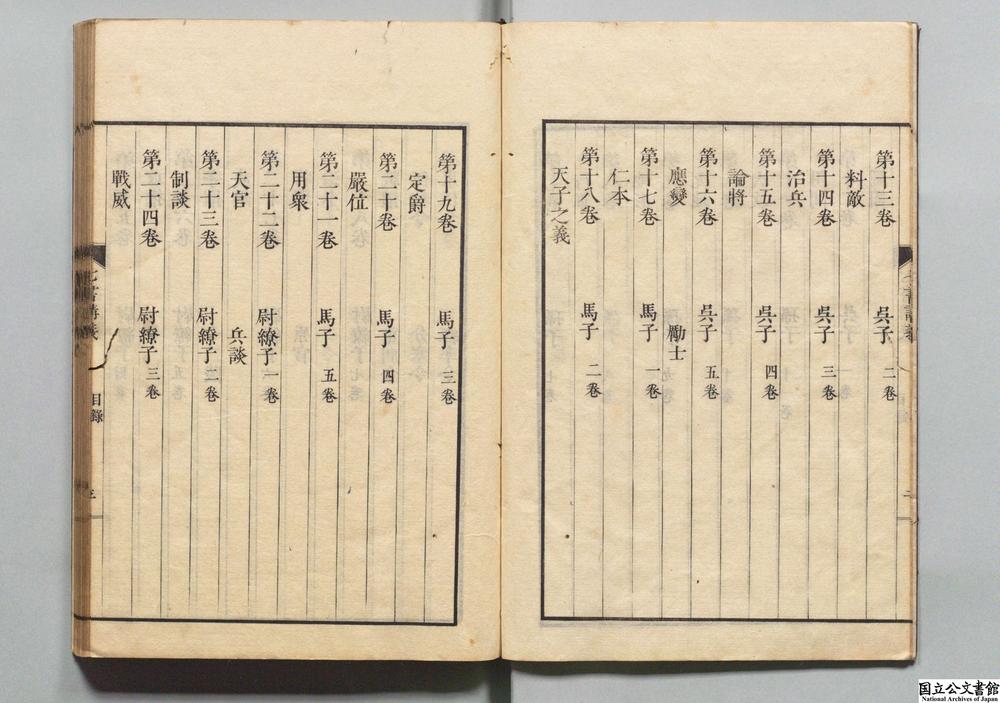 第十三卷 吳子 二卷
料敵
第十四卷 吳子 三卷
治兵
第十五卷 吳子 四卷
論將
第十六卷 吳子 五卷
應變 勵士
第十七卷 馬子 一卷
仁本
第十八卷 馬子 二卷
天子之義
第十九卷 馬子 三卷
定爵
第二十卷 馬子 四卷
嚴位
第二十一卷 馬子 五卷
用衆
第二十二卷 尉繚子 一卷
天官 兵談
第二十三卷 尉繚子 二卷
制談
第二十四卷 尉繚子 三卷
戰威
七書講義 目錄
国立公文書館
National Archives of Japan